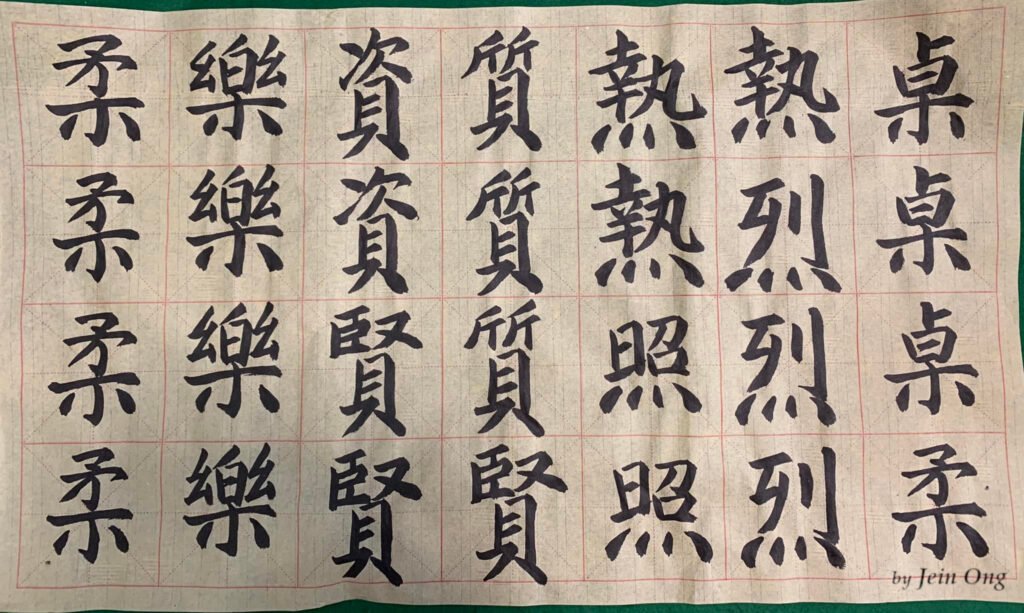 桌桌桌柔
熱烈烈烈
熱熱照照
質質質賢
資資賢賢
樂樂樂樂
柔柔柔柔
by Jein Ong